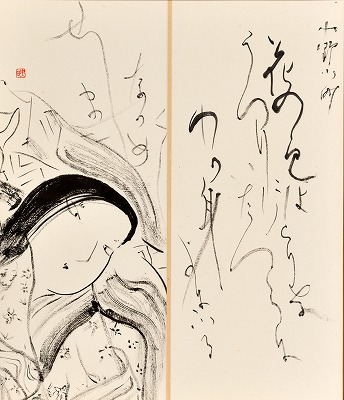 小野小町
花の色はうつりに
けりないたつらに
わか身よにふる
なかめ